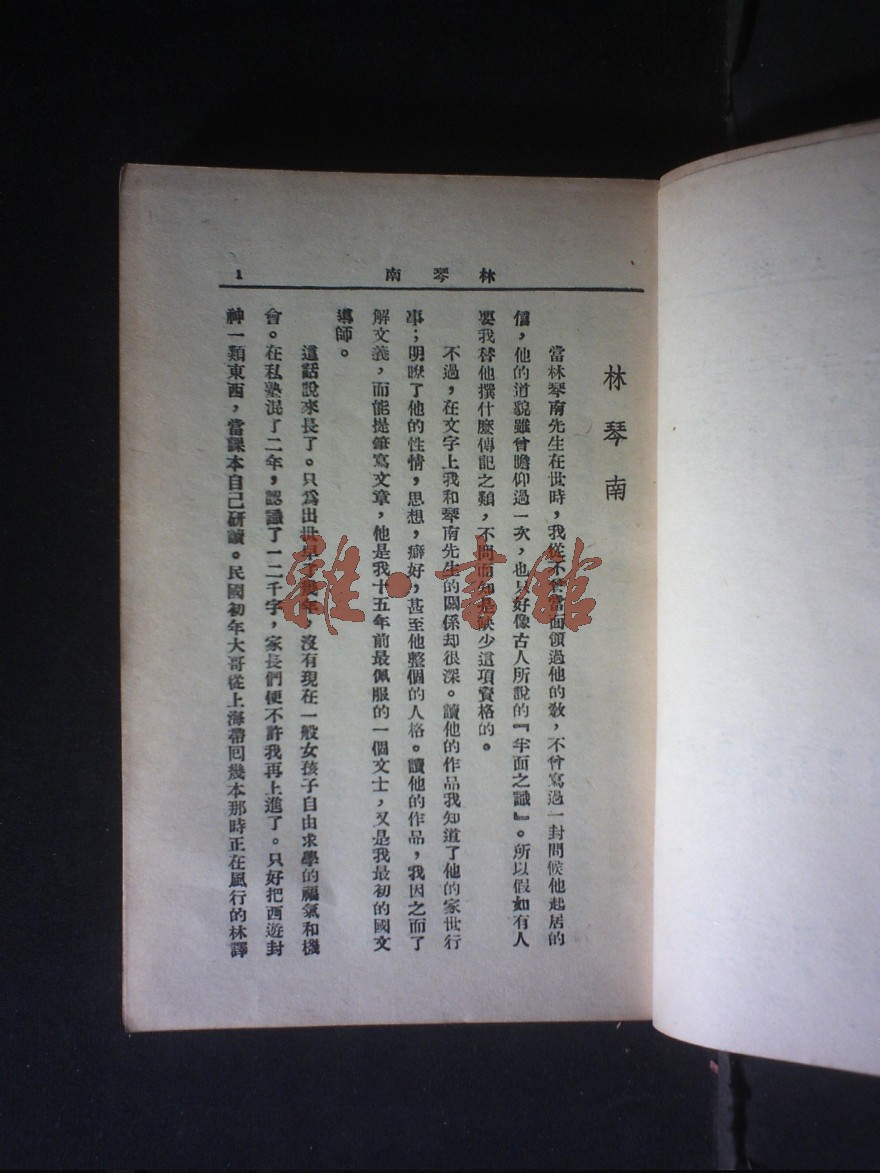 林琴南
1
林琴南
當林琴南先生在世時，我從不曾當面領過他的敎，不曾寫過一封問候他起居的
信，他的道貌雖曾瞻仰過一次，也只好像古人所說的『半面之識』。所以假如有人
要我替他撰什麽傳記之類，不問而知是缺少這項資格的。
不過，在文字上我和琴南先生的關係却很深。讀他的作品我知道了他的家世行
事；明瞭了他的性情，思想，癖好，甚至他整個的人格。讀他的作品，我因之而了
解文義，而能提筆寫文章，他是我十五年前最佩服的一個文士，又是我最初的國文
導師。
這話說來長了。只爲出世早了幾年，沒有現在一般女孩子自由求學的福氣和機
會。在私塾混了二年，認識了一二千字，家長們便不許我再上進了。只好把西遊封
神一類東西，當課本自己研讀。民國初年大哥從上海帶回幾本那時正在風行的林譯
雜·書館